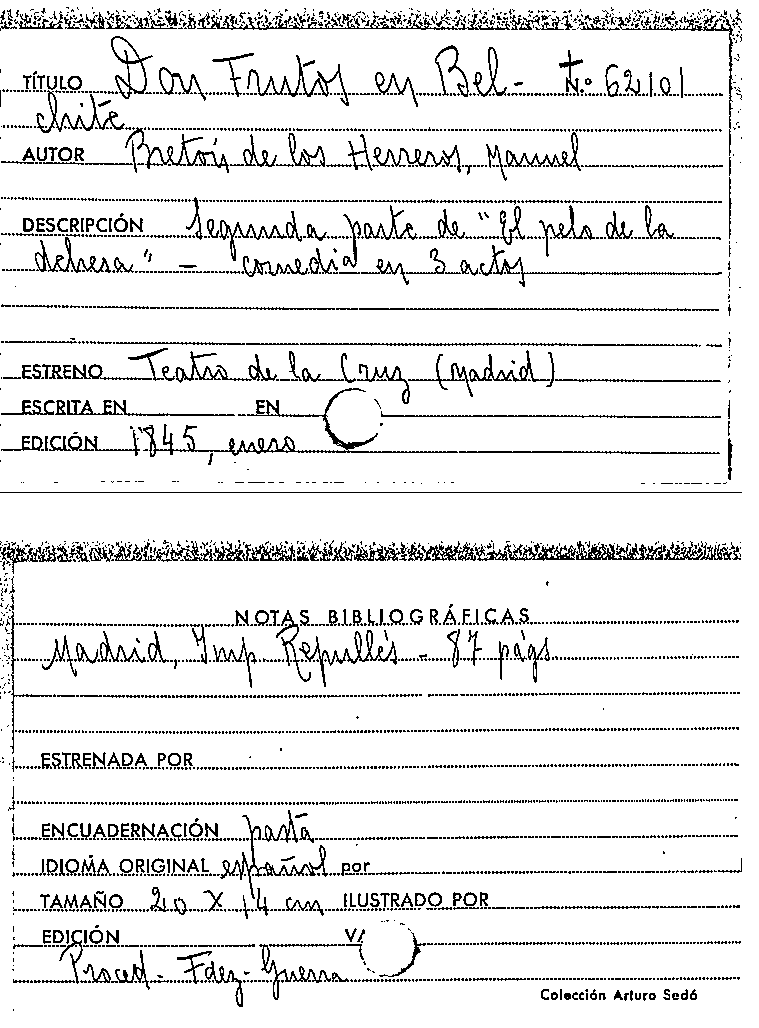 TÍTULO Don Frutos en Bel- N.º 62101
chite
AUTOR Bretón de los Herreros, Manuel
DESCRIPCIÓN Segunda parte de "El pelo de la
dehesa" - comedia en 3 actos
ESTRENO Teatro de la Cruz (Madrid)
ESCRITA EN EN
EDICIÓN 1845, enero
NOTAS BIBLIOGRÁFICAS
Madrid, Imp Repullés - 87 págs
ESTRENADA POR
ENCUADERNACIÓN pasta
IDIOMA ORIGINAL español por
TAMAÑO 20 X 14 cm ILUSTRADO POR
EDICIÓN
Proced- Fdez-Guerra
Colección Arturo Sedó